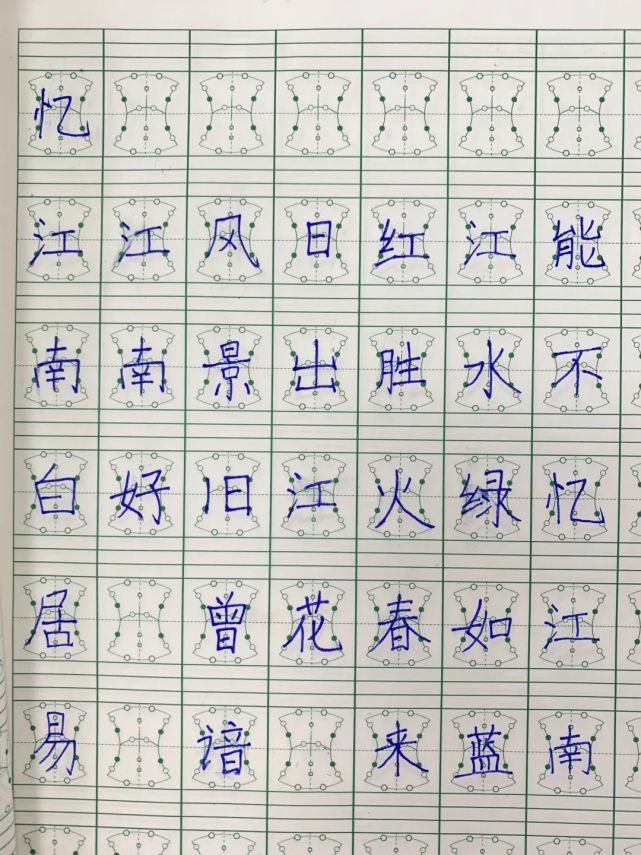 忆江南白居易
江南好
风景旧曾谙
日出江花
红胜火春来
江水绿如蓝
能不忆江南